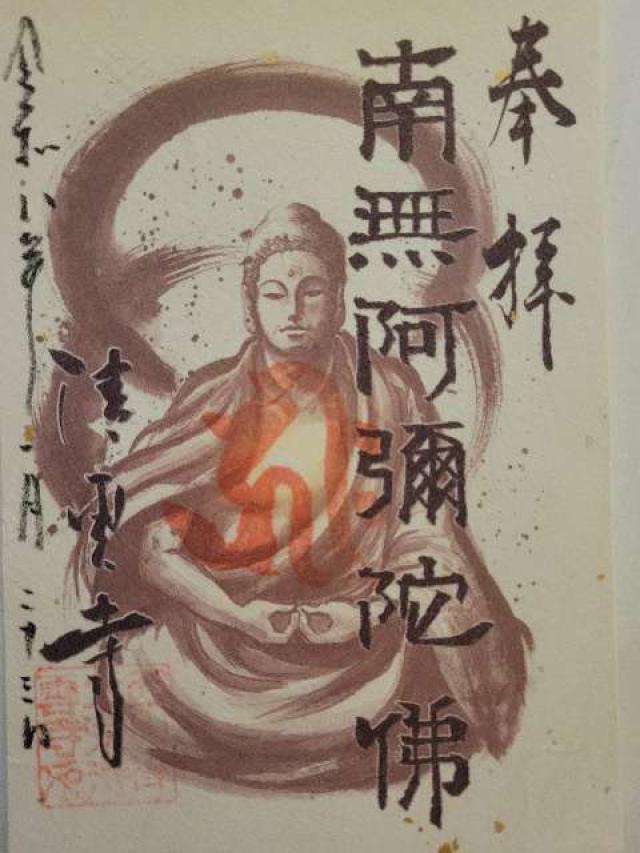 奉拝
南無阿彌陀佛
清雲寺
令和八年二月二十三日